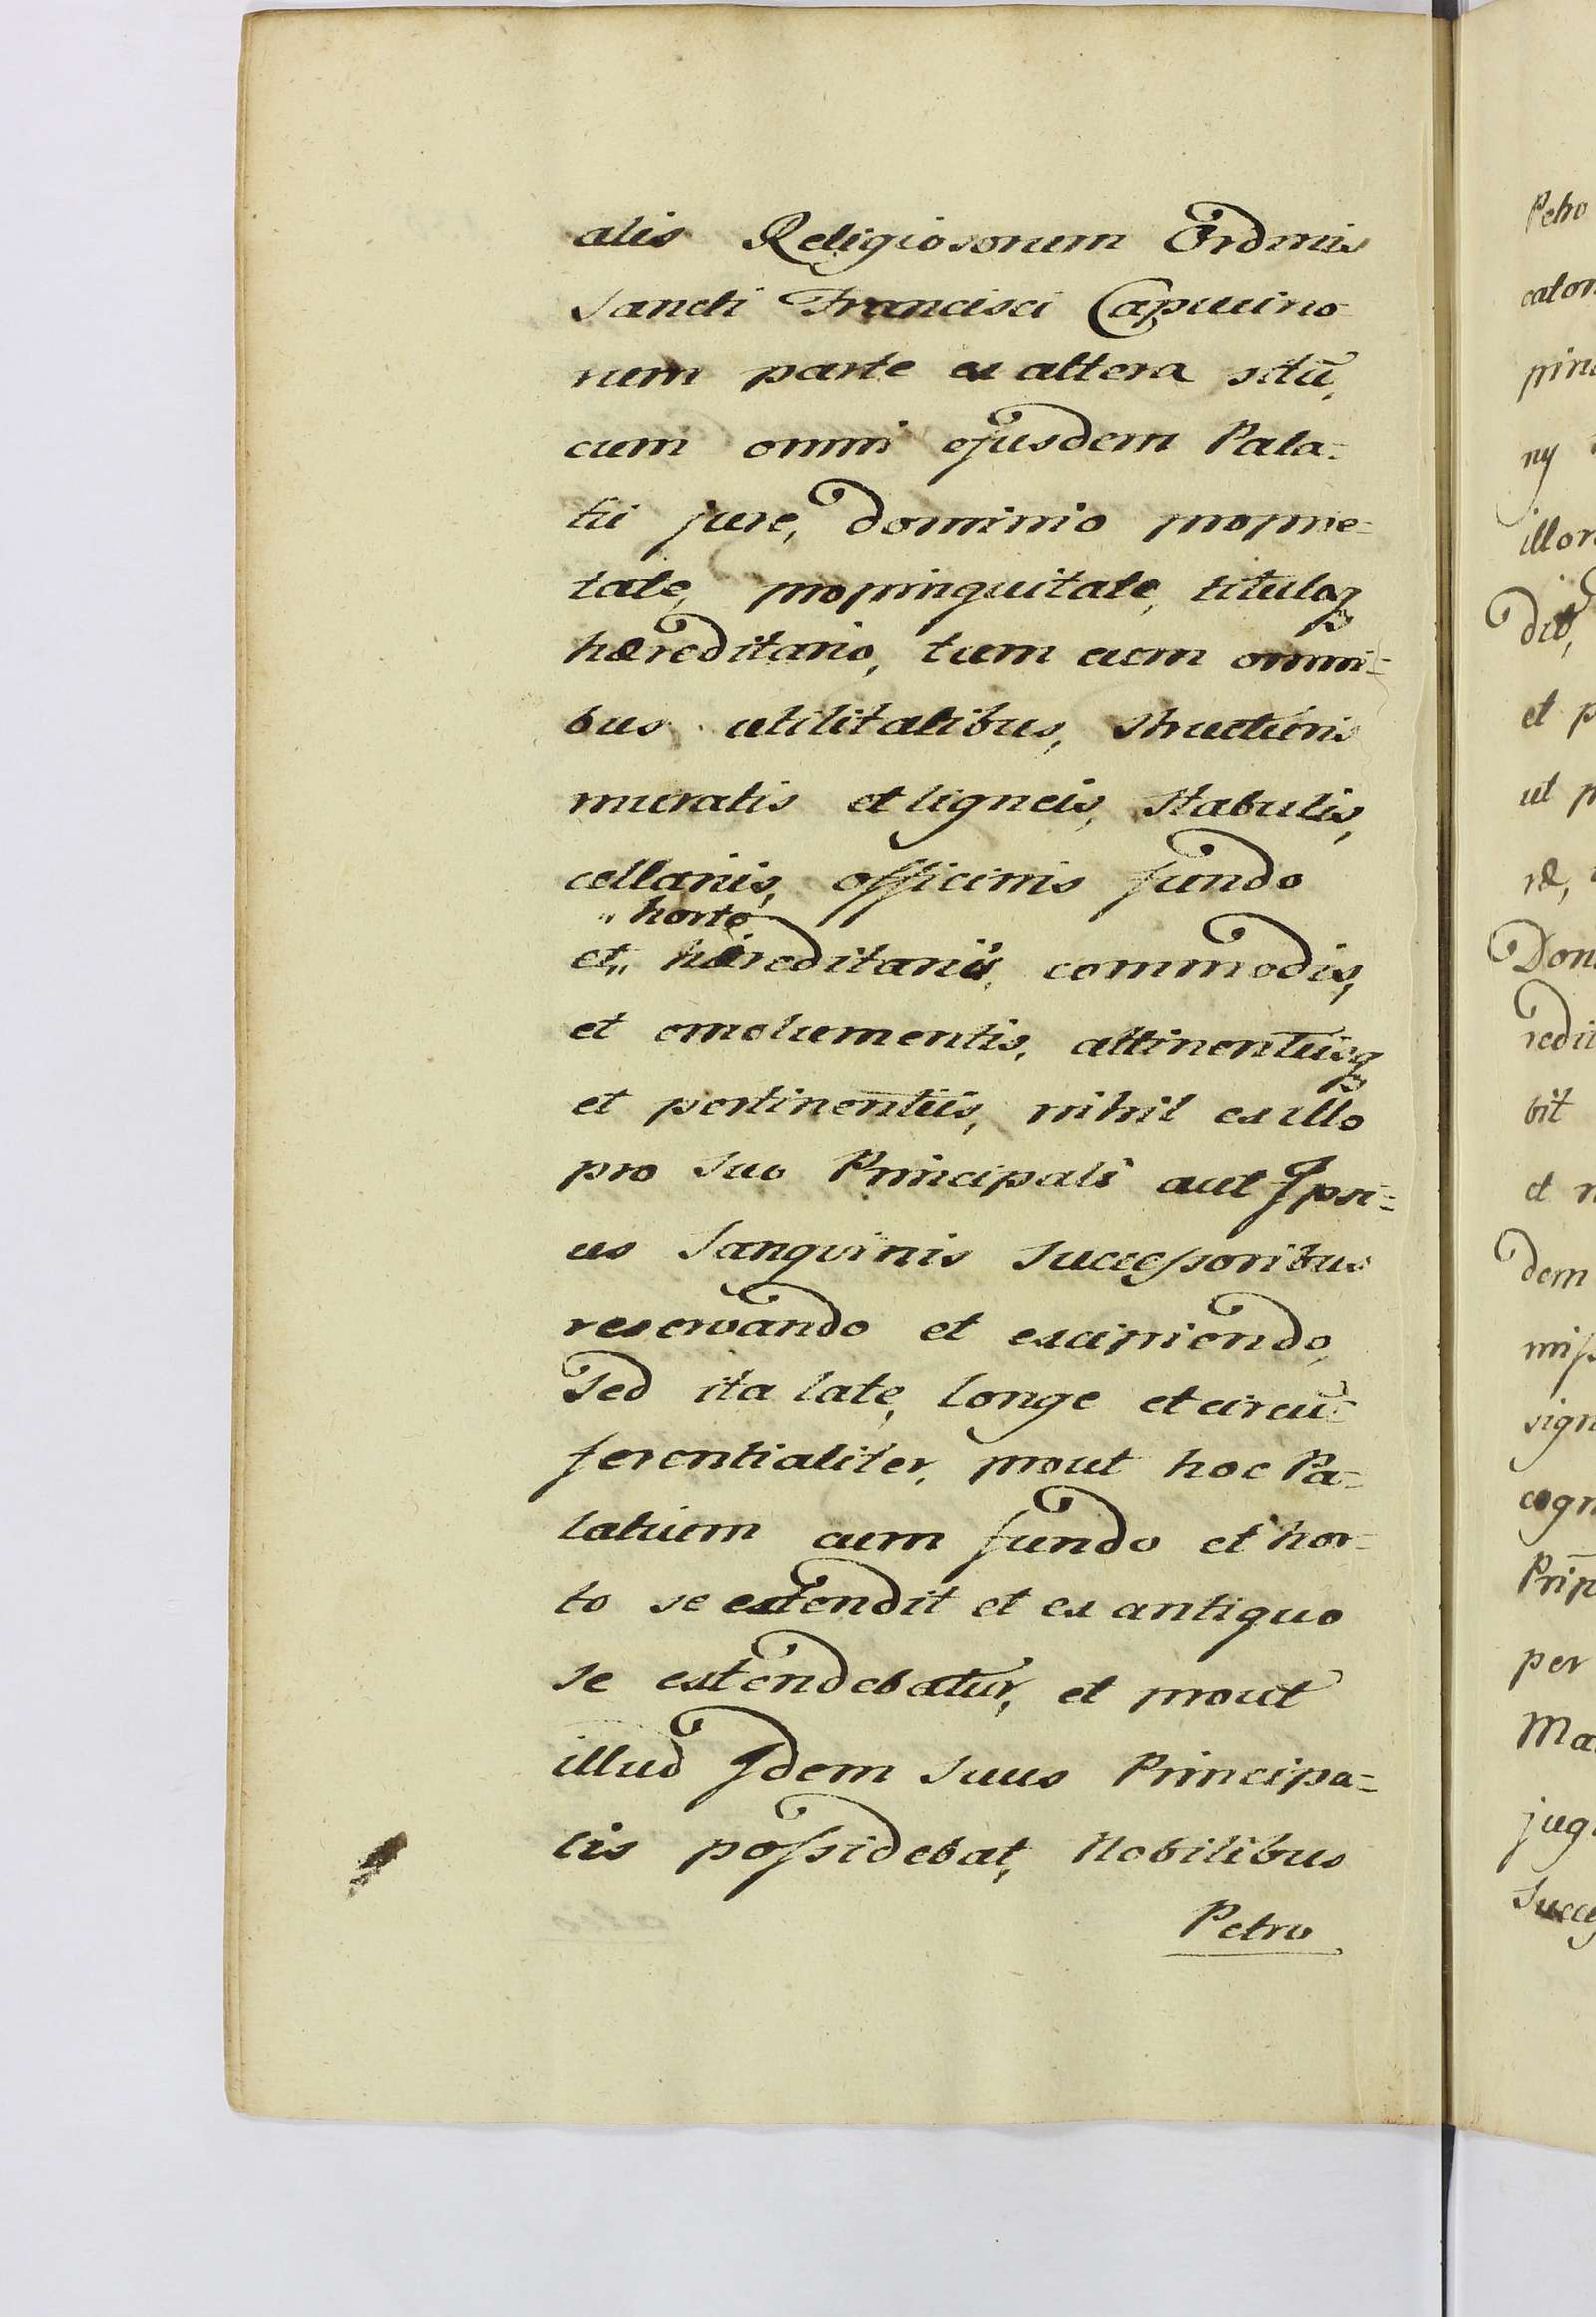 alis Religiosorum Ordinis
Sancti Francisci Capucino
rum parte ex altera sitū,
cum omni ejusdem Pala=
tii jure, dominio proprie=
tate, propinquitate, tituloq
hæreditario, tum cum omni=
bus utilitatibus, structuris
muratis et ligneis, Stabulis,
cellariis, officinis fundo
„ horto
et„ hæreditariis, commodis,
et emolumentis, attinentiisq
et pertinentiis, nihil ex illo
pro Suo Principali aut Ipsi=
us Sanguinis Successoribus
reservando et excipiendo,
Sed ita late, longe et circū=
ferentialiter, prout hoc Pa=
latium cum fundo et hor=
to se extendit et ex antiquo
se extendebatur, et prout
illud Idem Suus Principa=
lis possidebat, Nobilibus
Petro
Petro
ny
et p
ut p
ræ,
bit
et r
dem
per
Ma